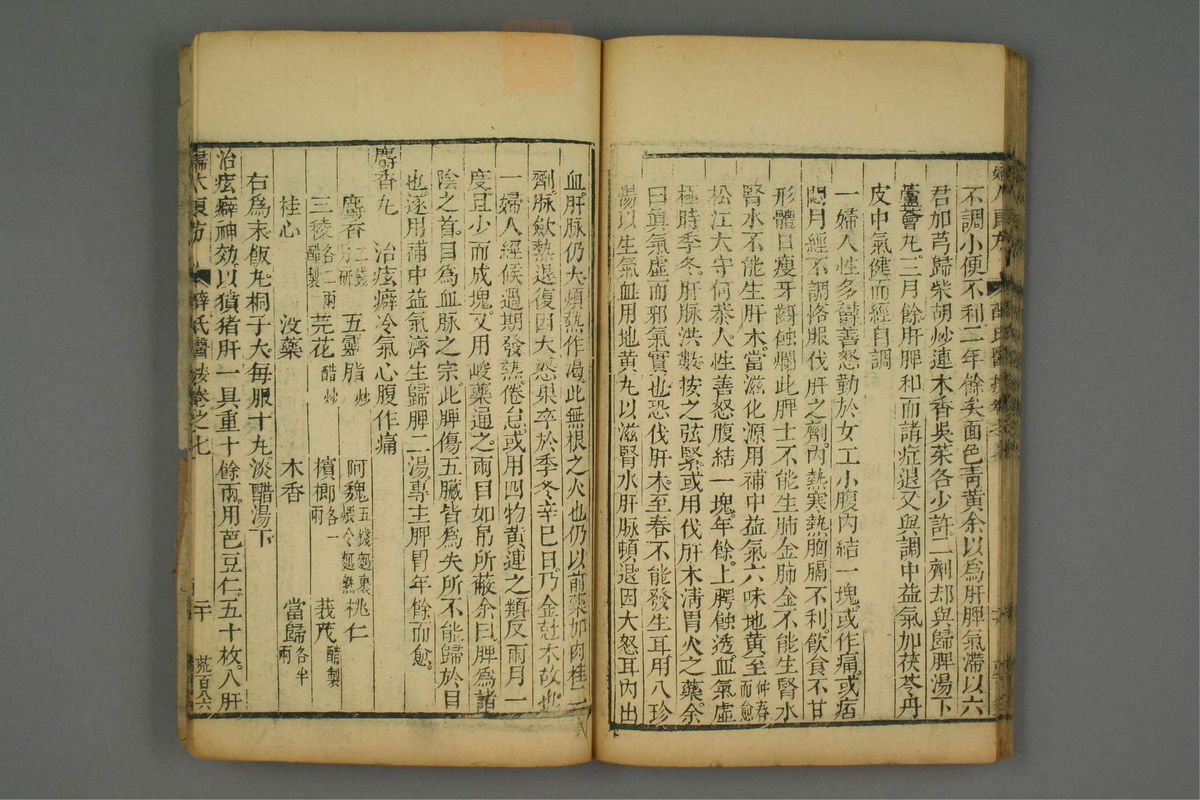 不調小便不利二年餘矣面色靑黃余以爲肝脾氣滯以六
君加芎歸柴胡炒連木香吳茱各少許二劑却與歸脾湯下
蘆薈丸三月餘肝脾和而諸症退又與調中益氣加茯苓丹
皮中氣健而經自調
一婦人性多鬱善怒勤於女工小腹內結一塊或作痛或痞
悶月經不調恪服伐肝之劑內熱寒熱胸膈不利飮食不甘
形體日瘦牙齦蝕爛此脾土不能生肺金肺金不能生腎水
腎水不能生肝木當滋化源用補中益氣六味地黃至仲春而愈
松江太守何恭人性善怒腹結一塊年餘上腭蝕透血氣虛
極時季冬肝脈洪數按之弦緊或用伐肝木淸胃火之藥余
曰眞氣虛而邪氣實也恐伐肝木至春不能發生耳用八珍
湯以生氣血用地黃丸以滋腎水肝脈頓退因大怒耳內出
血肝脈仍大煩熱作渴此無根之火也仍以前藥加肉桂二
劑脈斂熱退復因大怒果卒於季冬辛巳日乃金尅木故也
一婦人經候過期發熱倦怠或用四物黃連之類反兩月一
度且少而成塊又用峻藥通之兩目如帛所蔽余曰脾爲諸
陰之首目爲血脈之宗此脾傷五臟皆爲失所不能歸於目
也遂用補中益氣濟生歸脾二湯專主脾胃年餘而愈
麝香丸 治痃癖冷氣心腹作痛
麝香二錢另硏 五靈脂炒 阿魏五錢麵裹煨令麵熟 桃仁
三稜各二兩醋製 芫花醋炒 檳榔各一兩 莪茂醋製
桂心 沒藥 木香 當歸各半兩
右爲末飯丸桐子大每服十丸淡醋湯下
治痃癖神効以獖猪肝一具重十餘兩用芭豆仁五十枚八肝
婦人良方 薛氏醫按卷之七 二十 荒百六